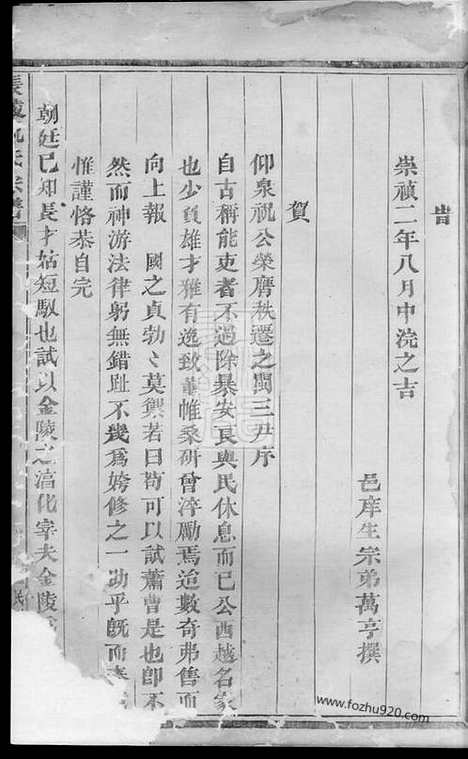 旹
崇禎二年八月中浣之吉
邑庠生宗弟萬亨撰
賀
仰泉祝公榮膺秩遷之閩三尹序
自古稱能吏者不過除暴安良與民休息而已公西越名家
也少負雄才雅有逸致董帷桑研曾淬勵焉迨數奇弗售而
向上報 國之貞勃〻莫禦若曰苟可以試蕭曹是也卽不
然而神游法律躬無錯趾不幾爲姱修之一助乎旣而
惟謹恪恭自完
朝廷已知長才姑短馭也試以金陵之宰夫金陵
www.fozhu920.com